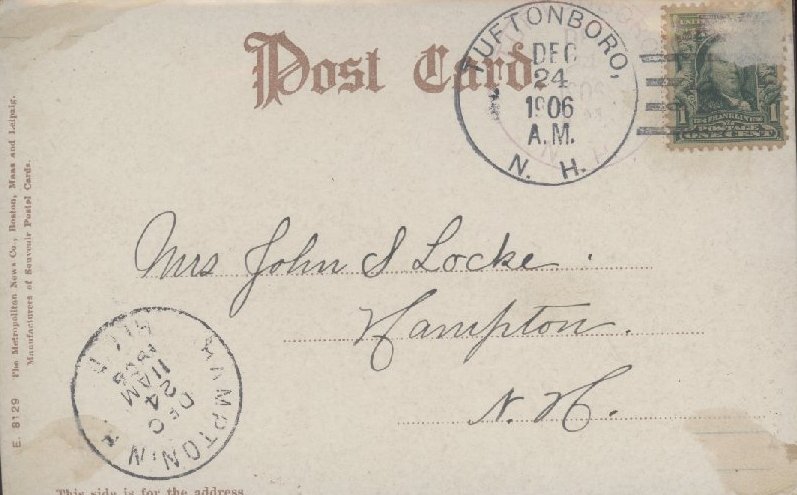 Post Card.
TUFTONBORO,
DEC
24
1906
A.M.
N. H.
1 FRANKLIN 1
POSTAGE
ONE CENT
Mrs John S Locke.
Hampton.
N. H.
HAMPTON N H
DEC
24
11 AM
1906
E. 8129 The Metropolitan News Co., Boston, Mass and Leipzig.
Manufacturers of Souvenir Postal Cards.
This side is for the address